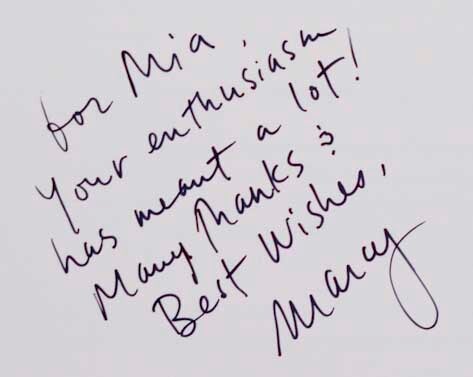 for Mia,
Your enthusiasm
has meant a lot!
Many Thanks &
Best Wishes,
Maray